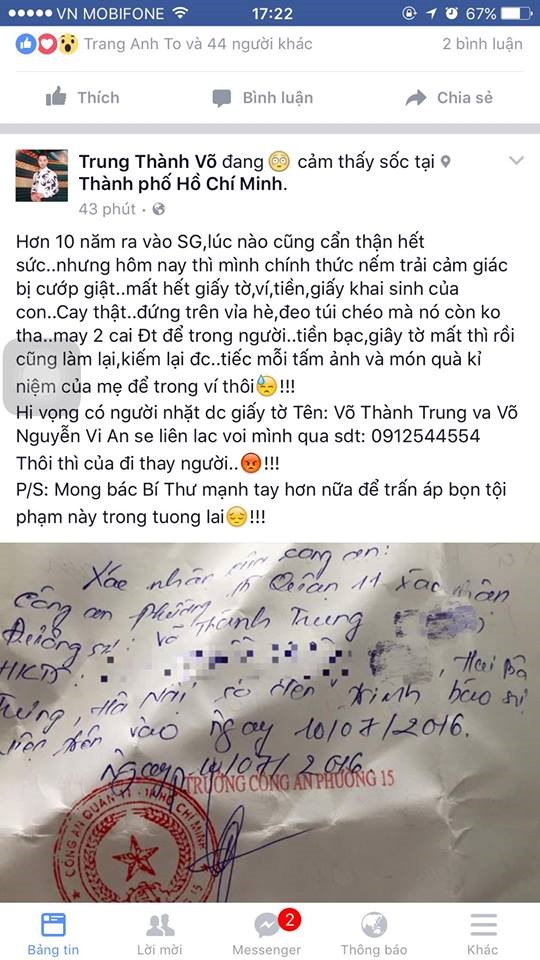 VN MOBIFONE 17:22 67%
Trang Anh To và 44 người khác 2 bình luận
Thích Bình luận Chia sẻ
Trung Thành Võ đang cảm thấy sốc tại
Thành phố Hồ Chí Minh.
43 phút ·
Hơn 10 năm ra vào SG,lúc nào cũng cẩn thận hết
sức..nhưng hôm nay thì mình chính thức nếm trải cảm giác
bị cướp giật..mất hết giấy tờ,ví,tiền,giấy khai sinh của
con..Cay thật..đứng trên vỉa hè,đeo túi chéo mà nó còn ko
tha..may 2 cai Đt để trong người..tiền bạc,giây tờ mất thì rồi
cũng làm lại,kiếm lại đc..tiếc mỗi tấm ảnh và món quà kỉ
niệm của mẹ để trong ví thôi!!!
Hi vọng có người nhặt dc giấy tờ Tên: Võ Thành Trung va Võ
Nguyễn Vi An se liên lac voi mình qua sdt: 0912544554
Thôi thì của đi thay người..!!!
P/S: Mong bác Bí Thư mạnh tay hơn nữa để trấn áp bọn tội
phạm này trong tuong lai!!!
Xác nhận của công an:
Công an phường 15 Quận 11 xác nhận
Đương sự: Võ Thành Trung
HKTT: , Hai Bà
Trưng, Hà Nội có đến trình báo sự
việc trên vào ngày 10/07/2016.
Ngày 10/07/2016
TRƯỞNG CÔNG AN PHƯỜNG 15
CÔNG AN QUẬN 11 - TP.HỒ CHÍ MINH
Bảng tin Lời mời Messenger 2 Thông báo Khác